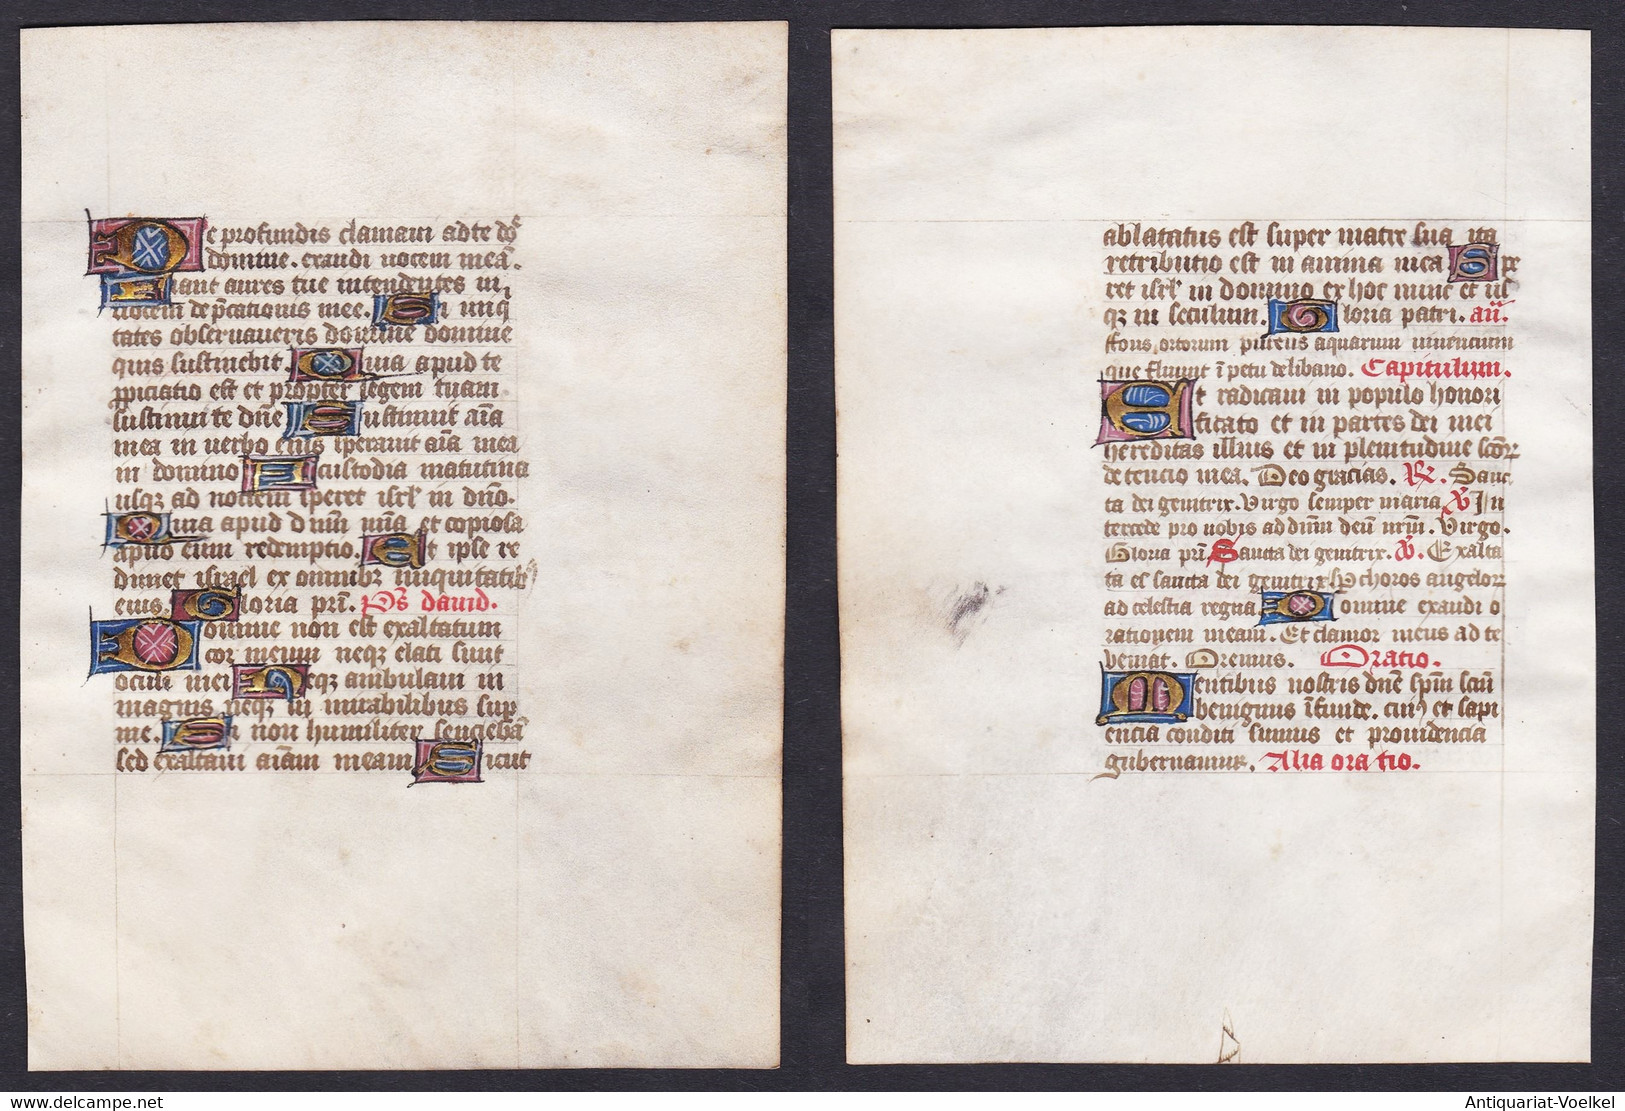 De profundis clamavi ad te dn̄e
domine. exaudi vocem meā.
Fiant aures tue intendentes in
vocem dep̄cationis mee. Si iniqi
tates observaveris domine domine
quis sustinebit Quia apud te
ppiciatio est et propter legem tuam
sustinui te dn̄e Sustinuit aīa
mea in verbo eius speravit aīa mea
in domino A custodia matutina
usqꝫ ad noctem speret isrl̄ in dn̄o.
Quia apud dn̄m mīa et copiosa
apud eum redemptio. Et ipse re
dimet israel ex omnibꝫ iniquitatibꝰ
eius. Gloria pri. Ps david.
Domine non est exaltatum
cor meum neqꝫ elati sunt
oculi mei Neqꝫ ambulavi in
magnis neqꝫ in mirabilibus sup
me. Si non humiliter senciebā
sed exaltavi aīam meam Sicut
ablatatus est super matre sua ita
retributio est in anima mea Spe
ret isrl̄ in domino ex hoc nunc et us
qꝫ in seculum. Gloria patri. an̄.
Fons ortorum puteus aquarum viventium
que fluunt ī petu de libano. Capitulum.
Et radicavi in populo honori
ficato et in partes dei mei
hereditas illius et in plenitudine scōꝝ
detencio mea. Deo gracias. R. Sanc
ta dei genitrix. Virgo semper maria V In
tercede pro nobis ad dn̄m deū nr̄m. Virgo.
Gloria pri Sancta dei genitrix. V. Exalta
ta es sancta dei genitrix Sp choros angeloꝝ
ad celestia regna. Domine exaudi o
rationem meam. Et clamor meus ad te
veniat. Oremus. Oratio.
Mentibus nostris dn̄e sp̄m scūm
benignus īfunde. cuiꝰ et sapi
encia conditi sumus et providencia
gubernamur. Alia oratio.
Antiquariat-Voelkel